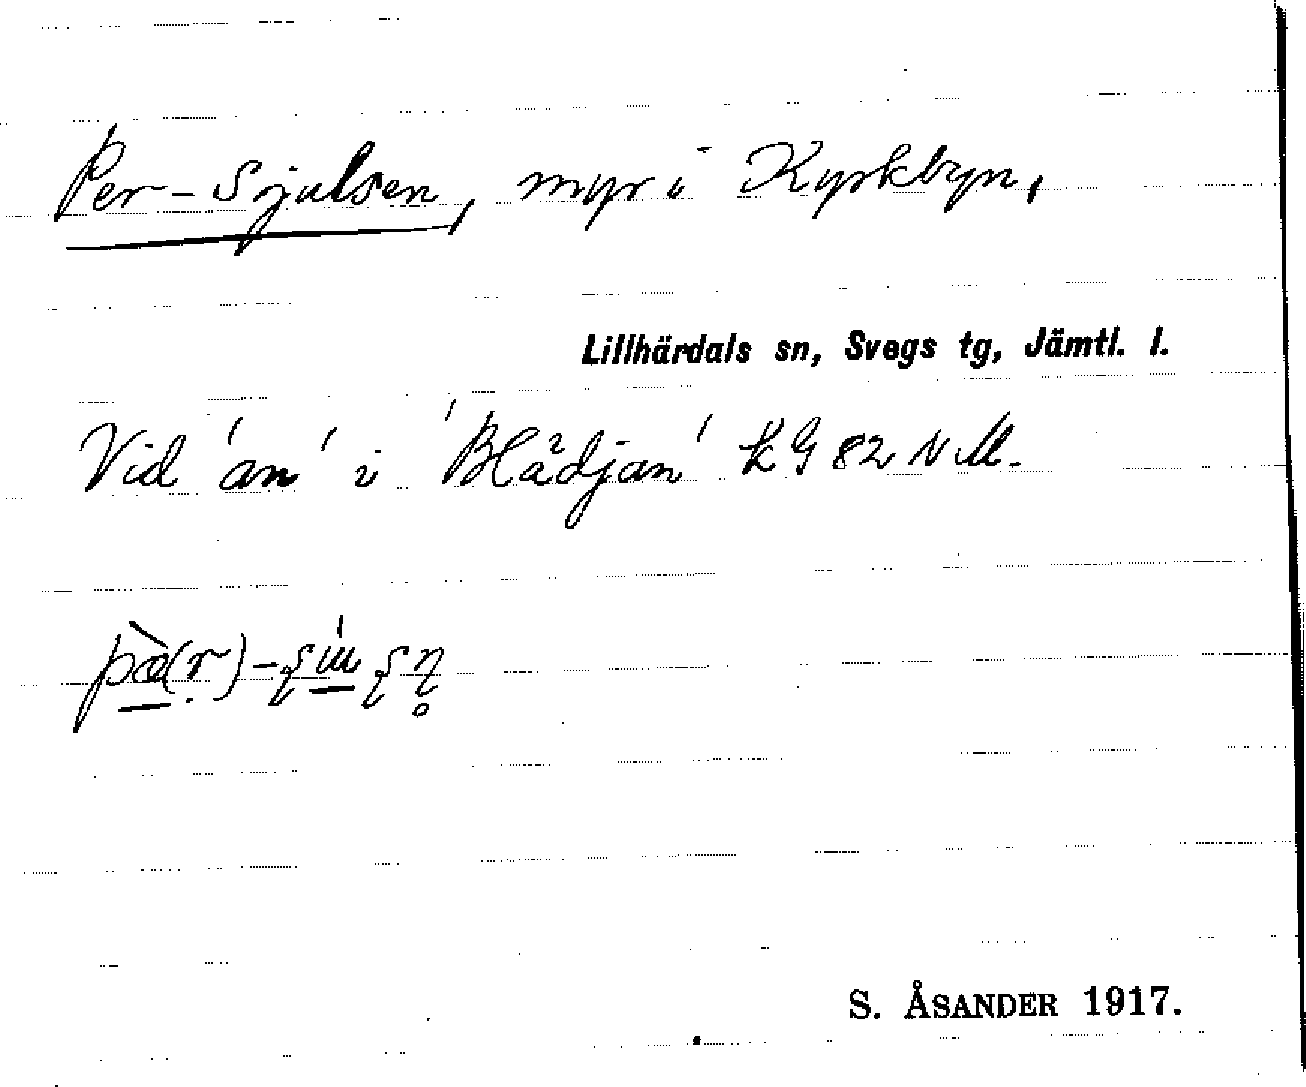 Per-Sjulsen, myr i Kyrkbyn,
Lillhärdals sn, Svegs tg, Jämtl. l.
Vid 'an' i 'Blädjan' kG 82 N M.
S. ÅSANDER 1917.